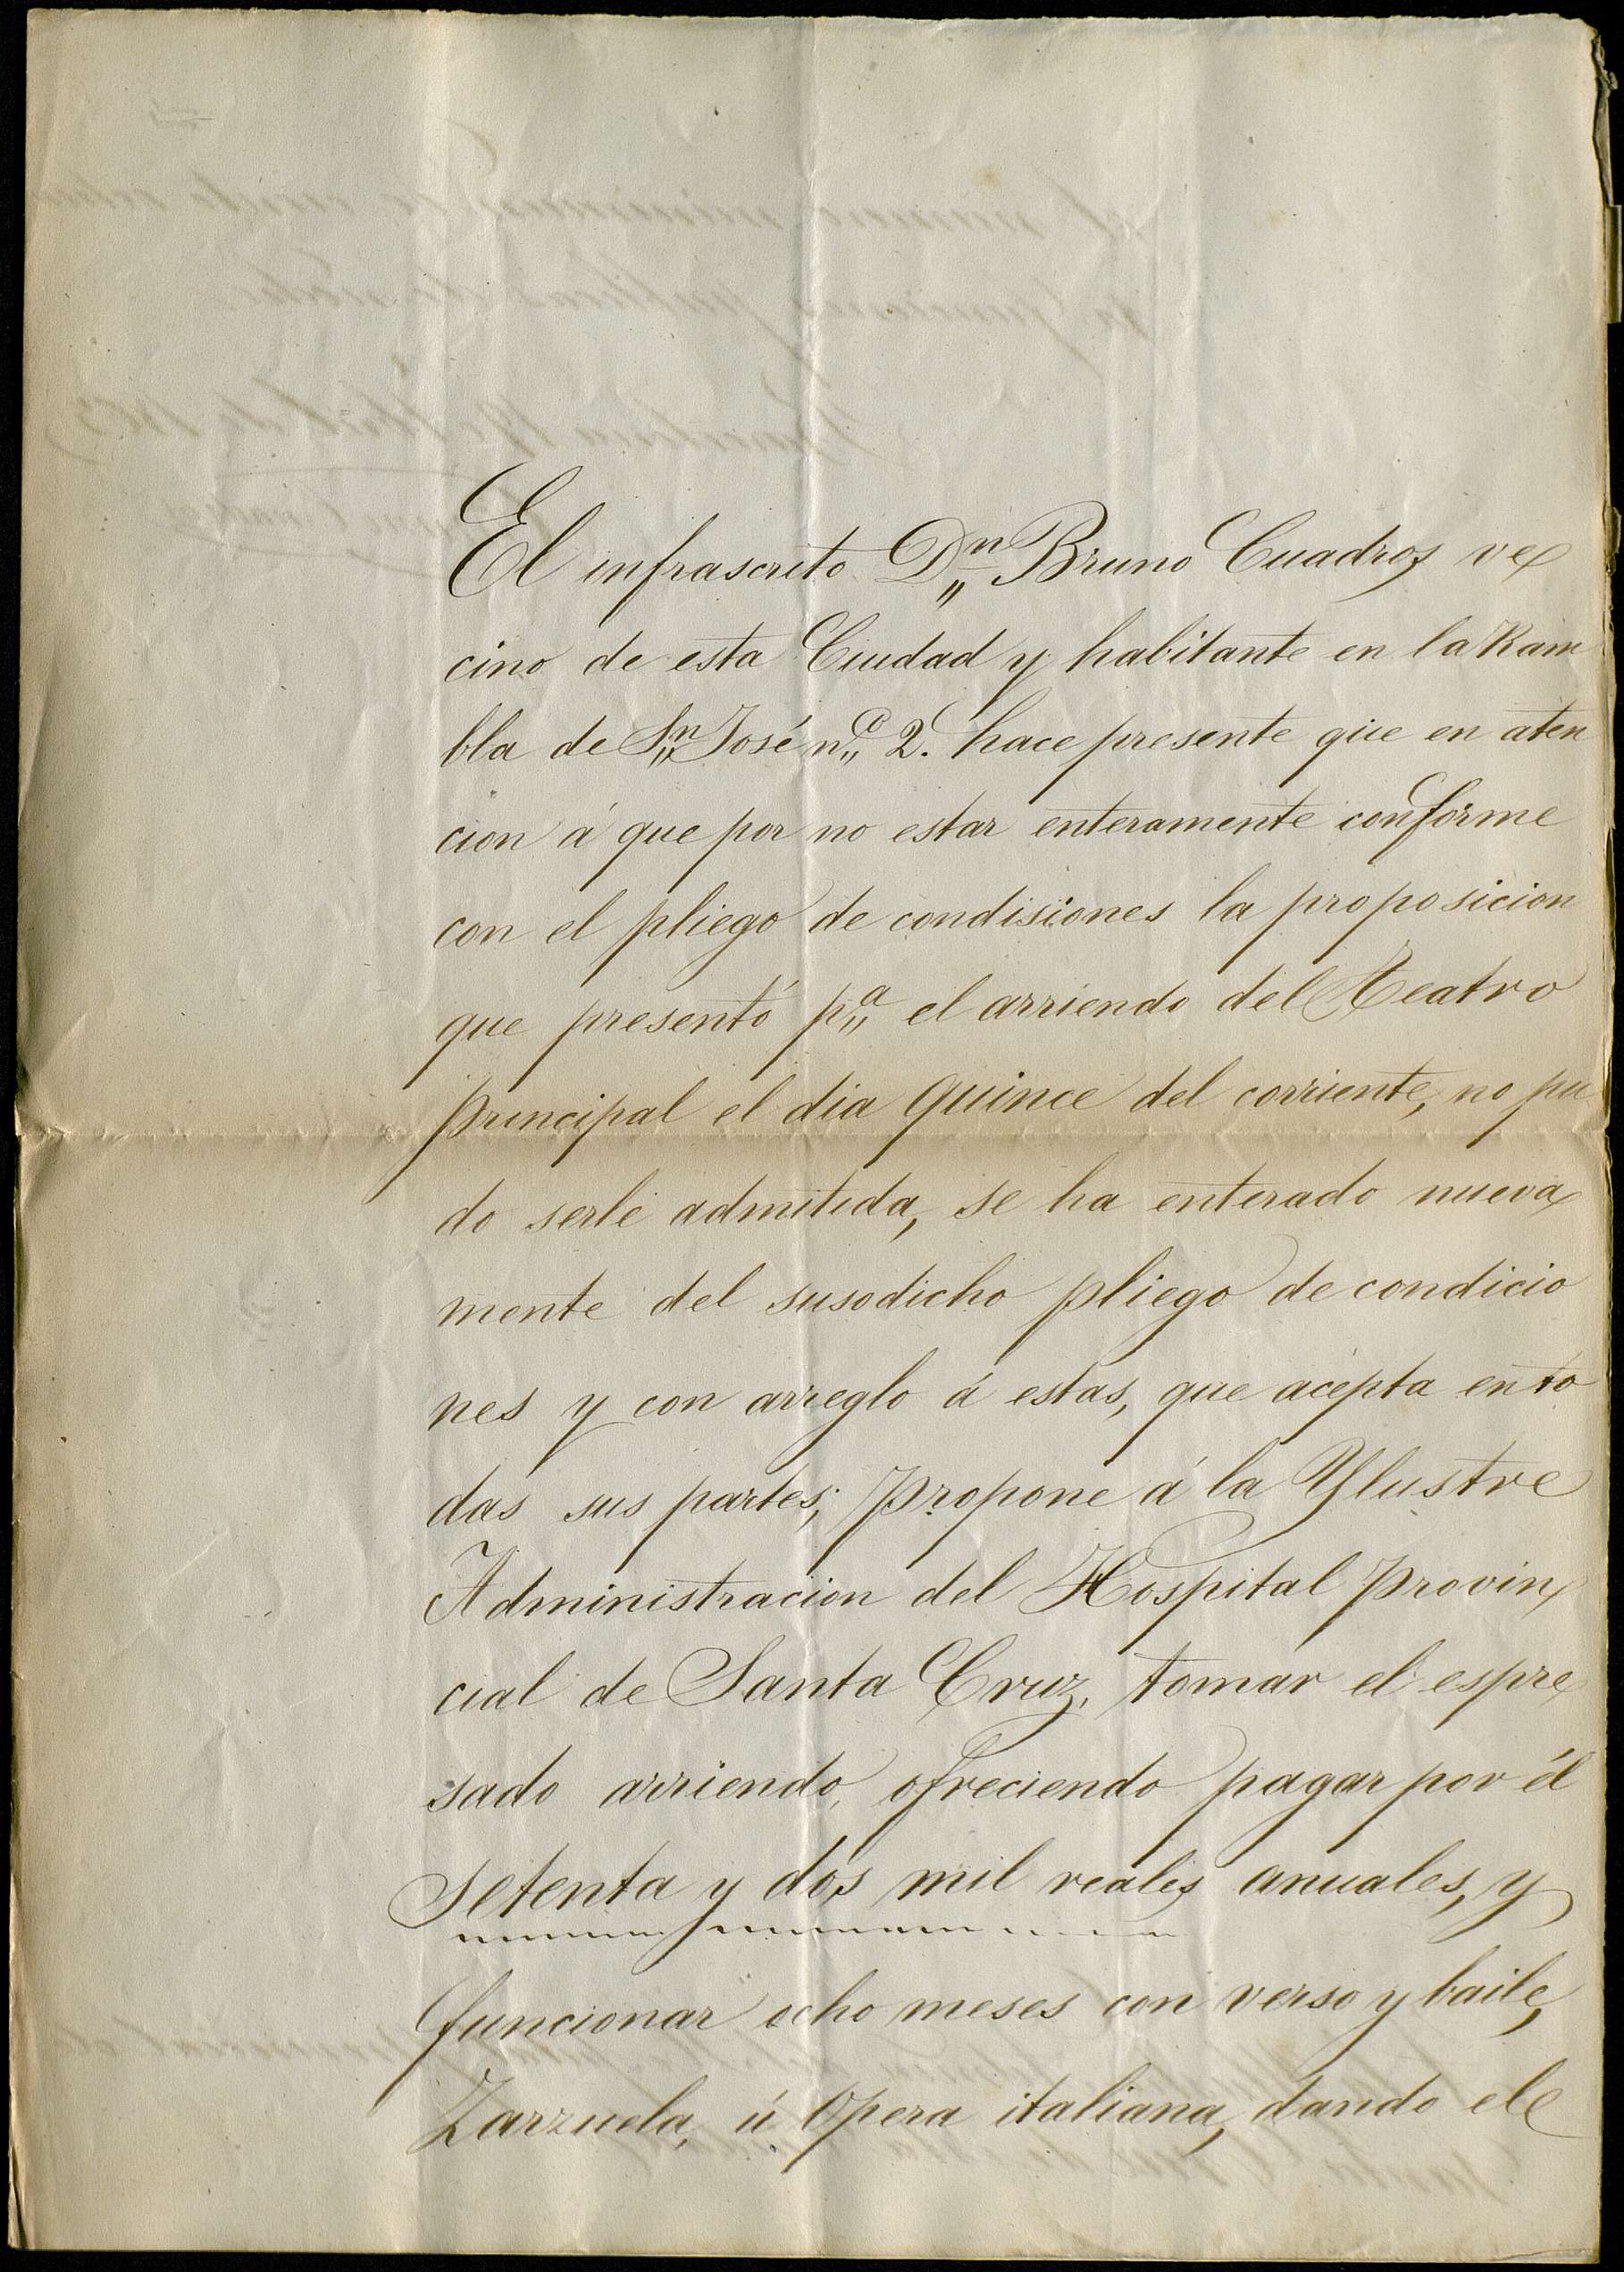 El infrascrito Dn Bruno Cuadros ve
cino de esta Ciudad y habitante en la Ram
bla de Sn José no 2. hace presente que en aten
cion á que por no estar enteramente conforme
con el pliego de condisiones la proposicion
que presentó pa el arriendo del Teatro
principal el dia quince del corriente, no pu
do serle admitida, se ha enterado nueva
mente del susodicho pliego de condicio
nes y con arreglo á estas, que acepta en to
das sus partes; propone á la Ylustre
Administracion del Hospital Provin
cial de Santa Cruz, tomar el espre
sado arriendo, ofreciendo pagar por él
setenta y dos mil reales anuales, y
funcionar ocho meses con verso y baile,
Zarzuela, ú Opera italiana, dando el